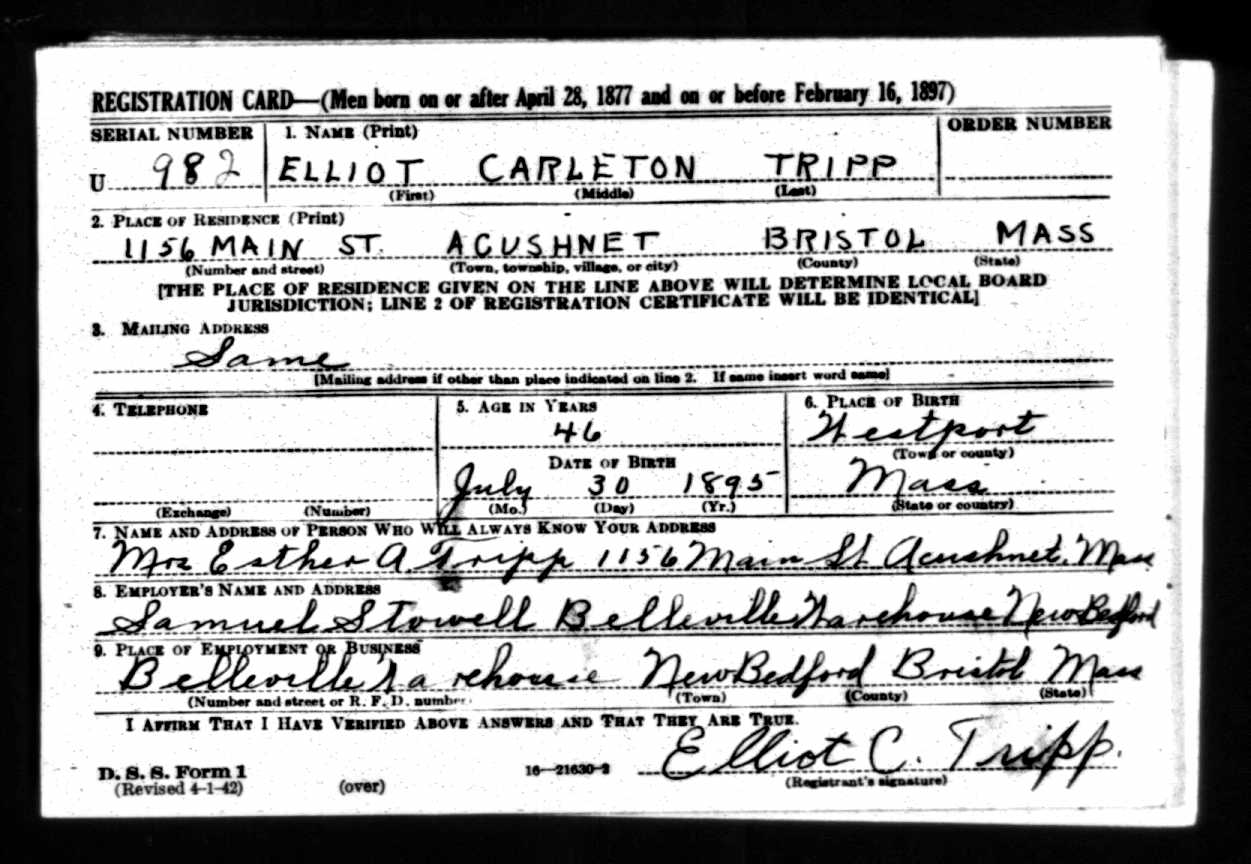 REGISTRATION CARD—(Men born on or after April 28, 1877 and on or before February 16, 1897)
SERIAL NUMBER 1. NAME (Print) ORDER NUMBER
U 982 ELLIOT CARLETON TRIPP
(First) (Middle) (Last)
2. PLACE OF RESIDENCE (Print)
1156 MAIN ST. ACUSHNET BRISTOL MASS
(Number and street) (Town, township, village, or city) (County) (State)
[THE PLACE OF RESIDENCE GIVEN ON THE LINE ABOVE WILL DETERMINE LOCAL BOARD
JURISDICTION; LINE 2 OF REGISTRATION CERTIFICATE WILL BE IDENTICAL]
3. MAILING ADDRESS
Same
[Mailing address if other than place indicated on line 2. If same insert word same]
4. TELEPHONE 5. AGE IN YEARS 6. PLACE OF BIRTH
46 Westport
(Town or county)
DATE OF BIRTH
July 30 1895 Mass
(Exchange) (Number) (Mo.) (Day) (Yr.) (State or country)
7. NAME AND ADDRESS OF PERSON WHO WILL ALWAYS KNOW YOUR ADDRESS
Mrs Esther A. Tripp 1156 Main St. Acushnet. Mass
8. EMPLOYER'S NAME AND ADDRESS
Samuel Stowell Belleville Warehouse New Bedford
9. PLACE OF EMPLOYMENT OR BUSINESS
Belleville Warehouse New Bedford Bristol Mass
(Number and street or R. F. D. number) (Town) (County) (State)
I AFFIRM THAT I HAVE VERIFIED ABOVE ANSWERS AND THAT THEY ARE TRUE.
Elliot C. Tripp.
D. S. S. Form 1 16—21630-2 (Registrant's signature)
(Revised 4-1-42) (over)